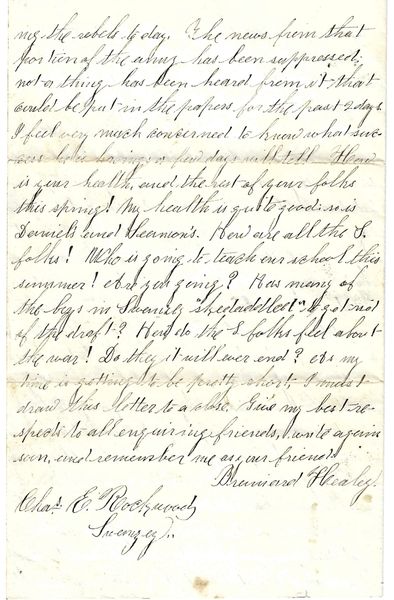 ing the rebels to day. The news from that
portion of the army has been suppressed;
not a thing has been heard from it that
could be put in the papers for the past 2 days
I feel very much concerned to know what suc-
cess he is having a few days will tell. How
is your health, and the rest of your folks
this spring? My health is quite good: so is
Daniel's and Hearmon's. How are all the S.
folks? Who is going to teach our school this
summer? Are you going? Has many of
the boys in Swanzey "skedaddled" to get rid
of the draft? How do the S folks feel about
the war? Do they it will ever end? As my
time is getting to be pretty short, I must
draw this letter to a close. Give my best re-
spects to all enquiring friends, write again
soon, and remember me as your friend
Brainard Healey.
Chas E. Rockwood
Swanzey.